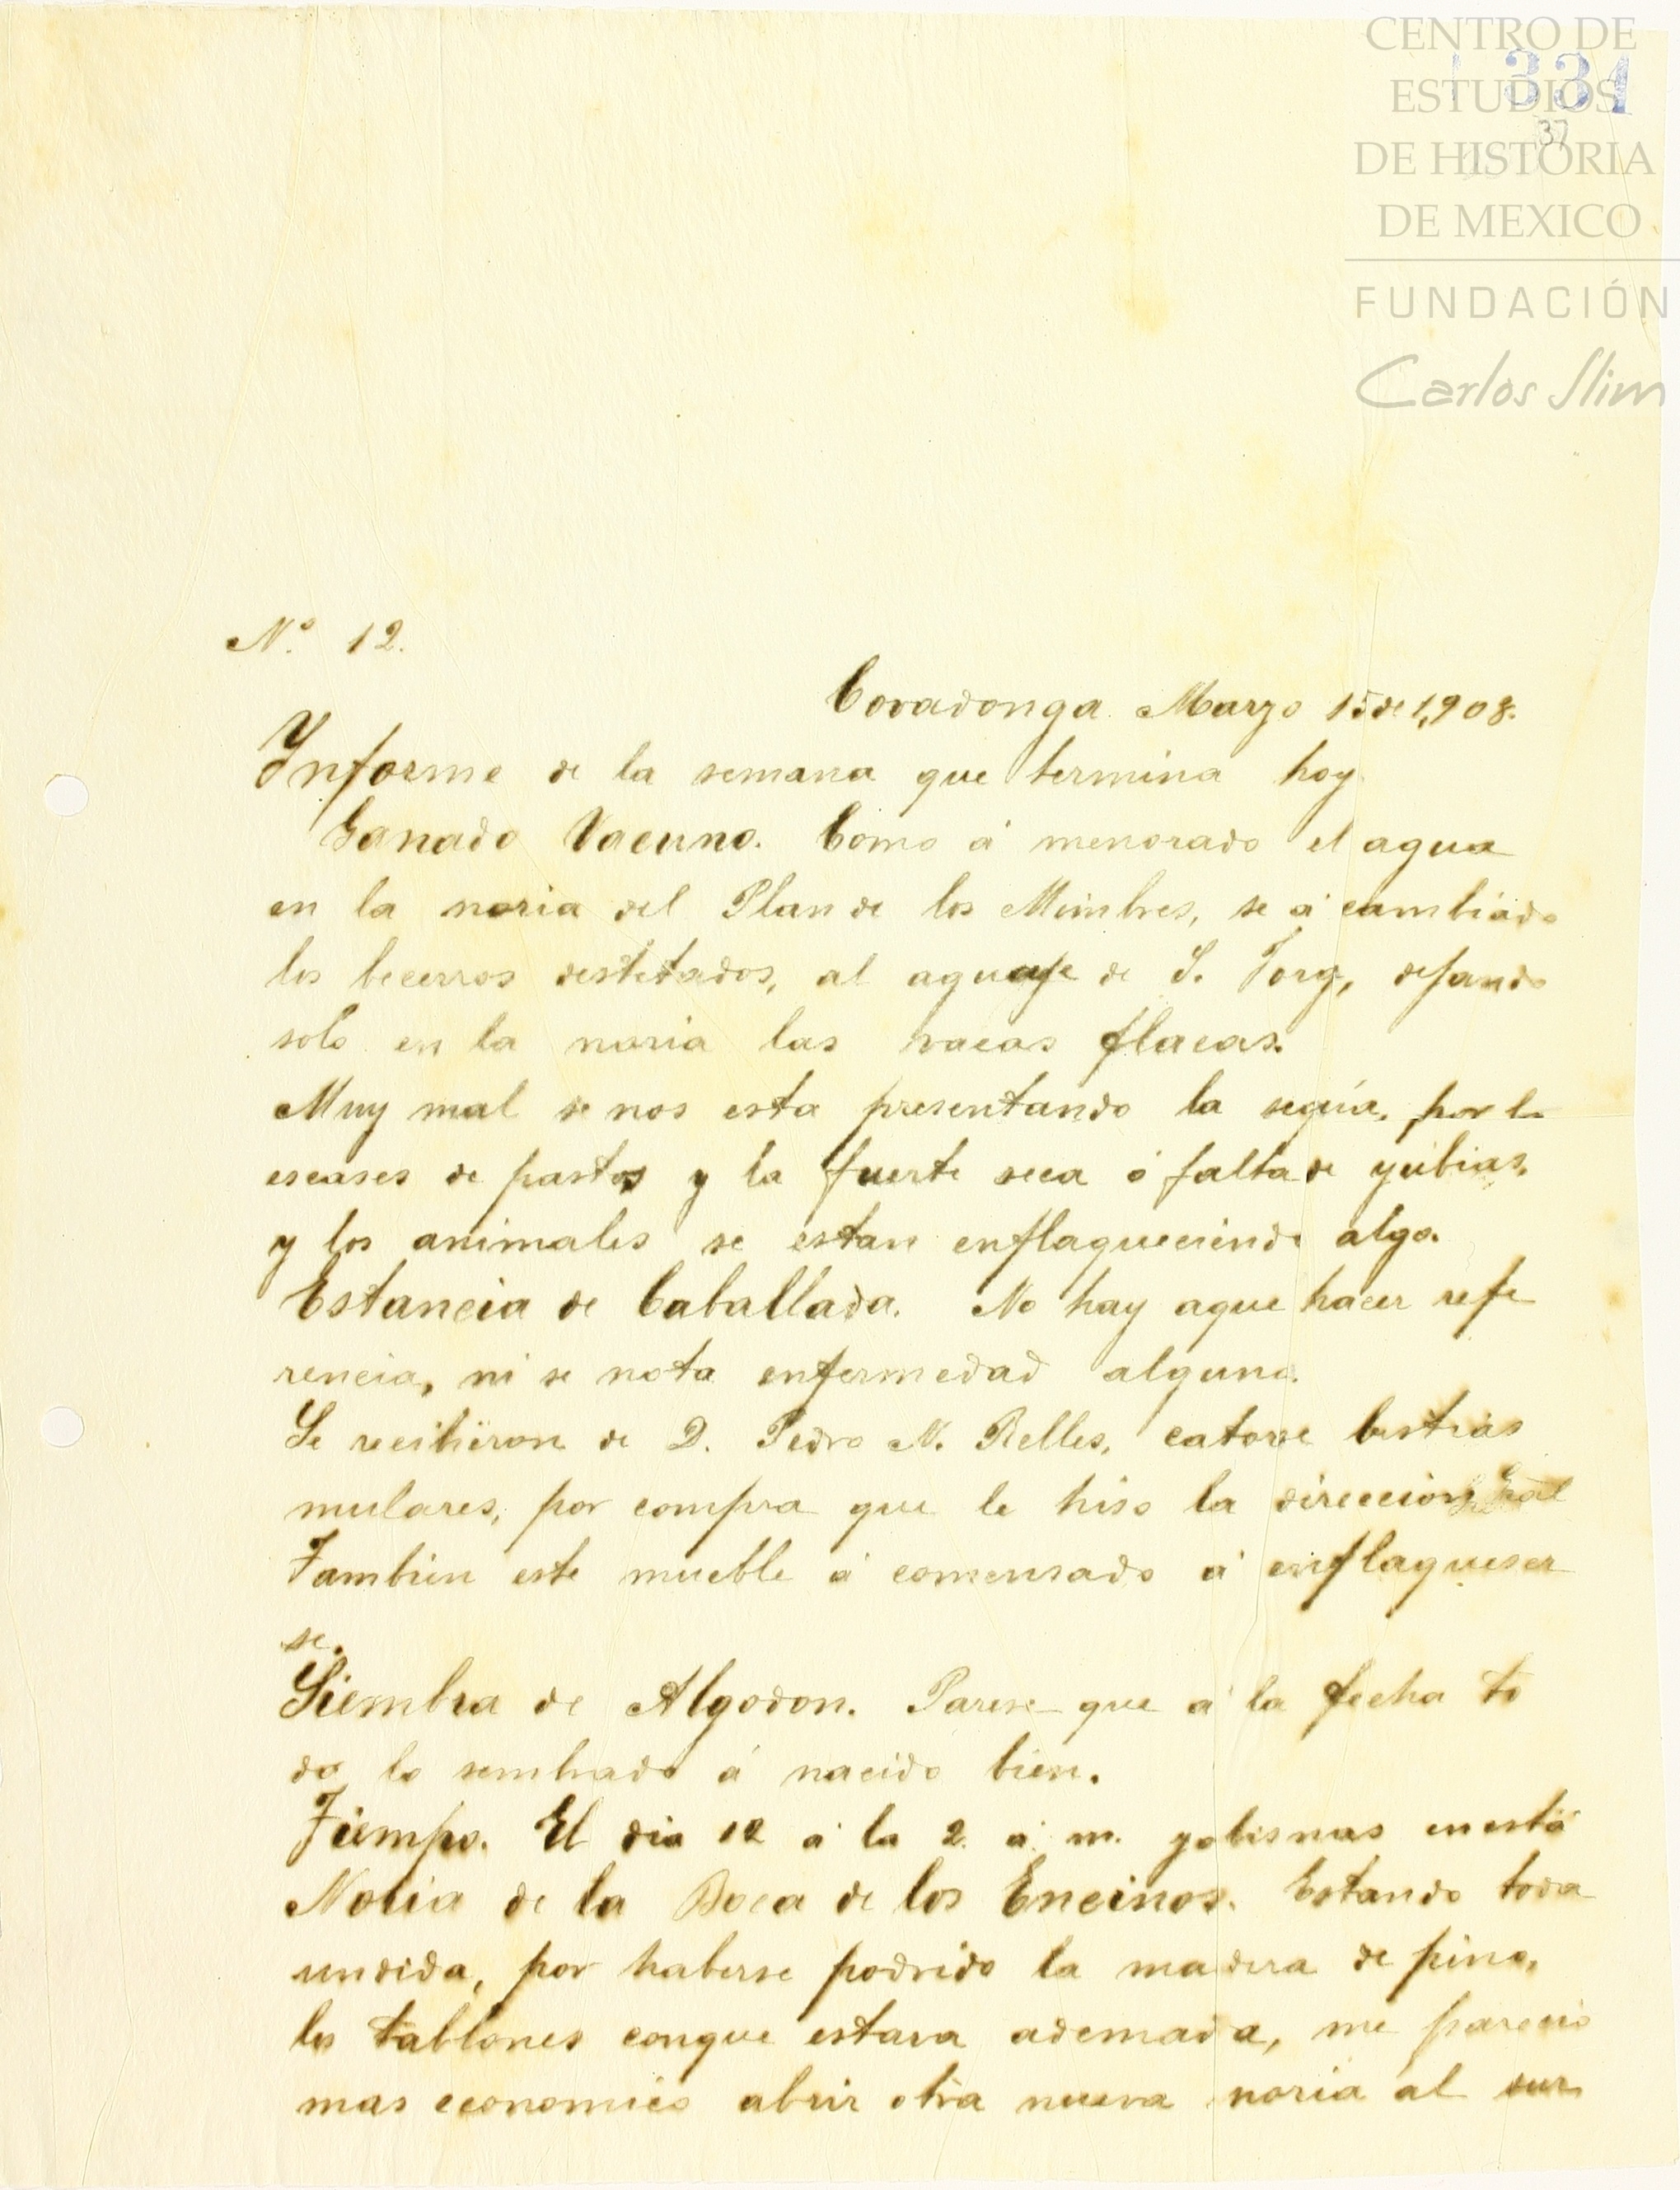 CENTRO DE
ESTUDIOS
DE HISTORIA
DE MEXICO
FUNDACIÓN
Carlos Slim
331
37
Nº 12.
Covadonga Marzo 15 de 1,908.
Informe de la semana que termina hoy.
Ganado Vacuno. Como á menorado el agua
en la noria del Plan de los Mimbres, se á cambiado
los becerros destetados, al aguaje de S. Jorg, dejando
solo en la noria las vacas flacas.
Muy mal se nos esta presentando la sequia, por la
escases de pastos y la fuerte seca ó falta de yubias,
y los animales se estan enflaqueciendo algo.
Estancia de Caballada. No hay aque hacer refe
rencia, ni se nota enfermedad alguna.
Se recibieron de D. Pedro N. Relles, catorse bestias
mulares, por compra que le hiso la direccion Gral
Tambien este mueble á comensado á enflaqueser
se.
Siembra de Algodon. Parese que á la fecha to
do lo sembrado á nacido bien.
Tiempo. El dia 12 á la 2. a. m. yobisnas en esta
Noria de la Boca de los Encinos. Estando toda
undida, por haberse podrido la madera de pino,
los tablones conque estava ademada, me parecio
mas economico abrir otra nueva noria al sur